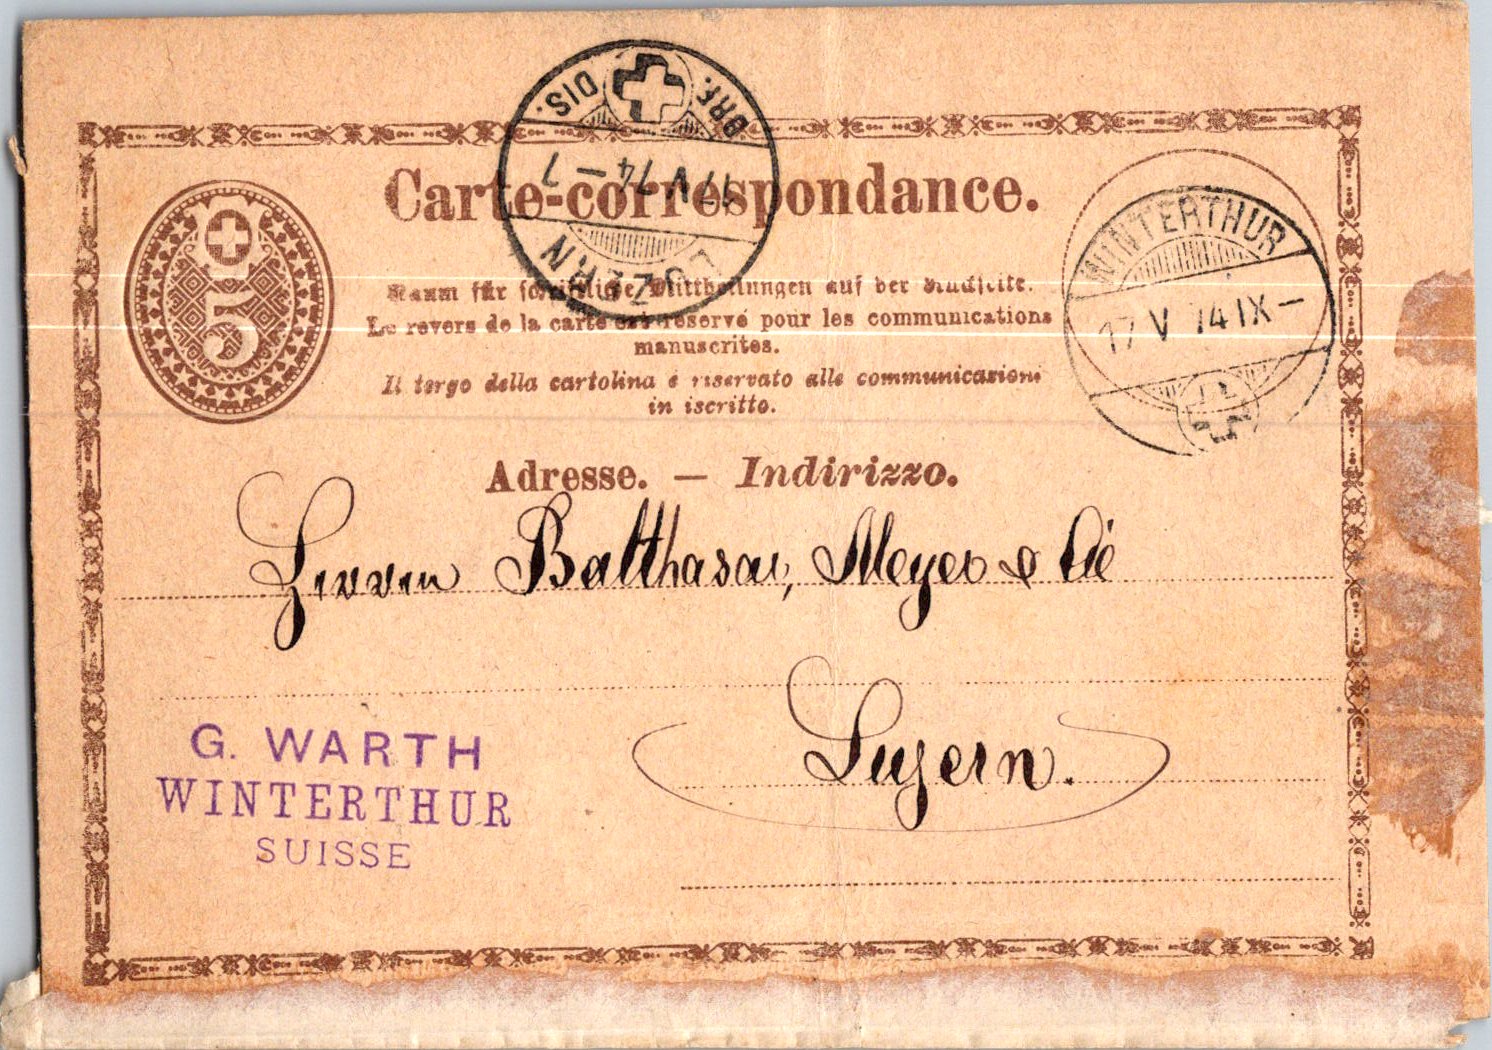 LUZERN
17 V 74 – 7
BRF. DIS.
Carte-correspondance.
5
WINTERTHUR
17 V 74 IX –
Raum für schriftliche Mittheilungen auf der Rückseite.
Le revers de la carte est réservé pour les communications
manuscrites.
Il tergo della cartolina è riservato alle communicazioni
in iscritto.
Adresse. — Indirizzo.
Herren Balthasar, Meyer & Cie
Luzern.
G. WARTH
WINTERTHUR
SUISSE